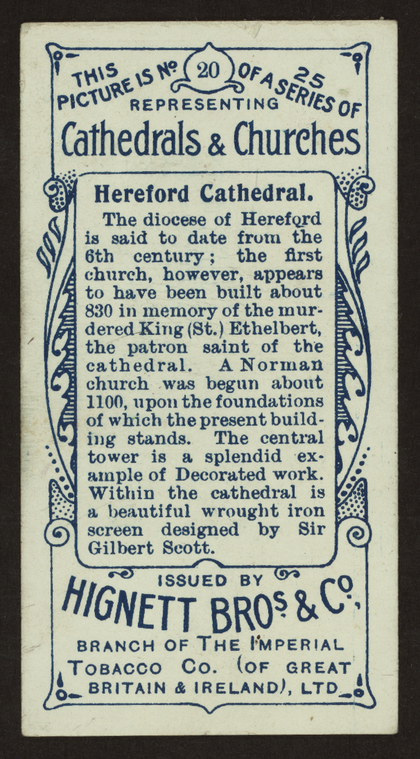 THIS PICTURE IS No 20 OF A SERIES OF 25
REPRESENTING
Cathedrals & Churches
Hereford Cathedral.
The diocese of Hereford
is said to date from the
6th century; the first
church, however, appears
to have been built about
830 in memory of the mur-
dered King (St.) Ethelbert,
the patron saint of the
cathedral. A Norman
church was begun about
1100, upon the foundations
of which the present build-
ing stands. The central
tower is a splendid ex-
ample of Decorated work.
Within the cathedral is
a beautiful wrought iron
screen designed by Sir
Gilbert Scott.
ISSUED BY
HIGNETT BROS. & Co.,
BRANCH OF THE IMPERIAL
TOBACCO CO. (OF GREAT
BRITAIN & IRELAND), LTD